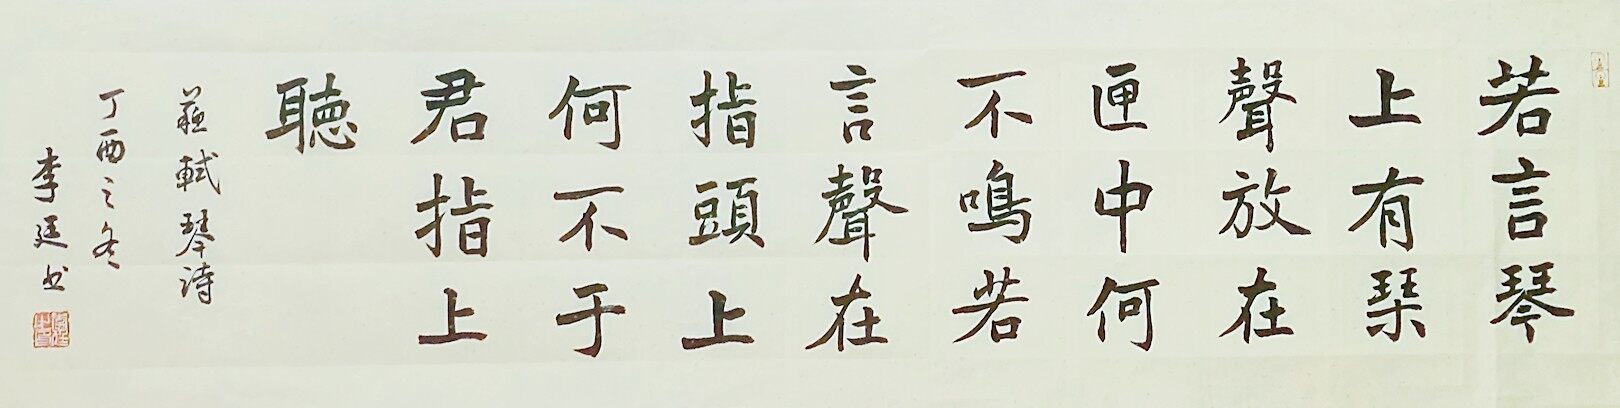 若言琴
上有琹
聲放在
匣中何
不鳴若
言聲在
指頭上
何不于
君指上
聽
蘇軾琴诗
丁酉之冬
李廷书